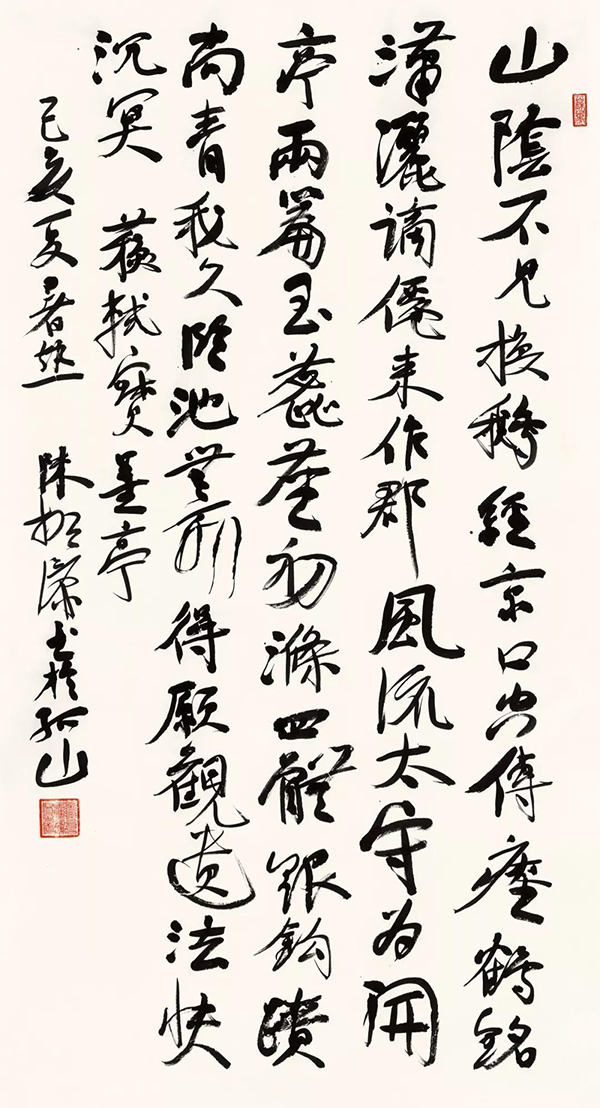 山陰不見換鵝經京口空傳瘞鶴銘
瀟灑謫僊來作郡風流太守為開
亭兩篇玉蘂塵初滌四體銀鉤蹟
尚青我久臨池無所得願觀遺法快
沉冥 蘇軾寶墨亭
己亥夏暑熱 陳振濂書於孤山